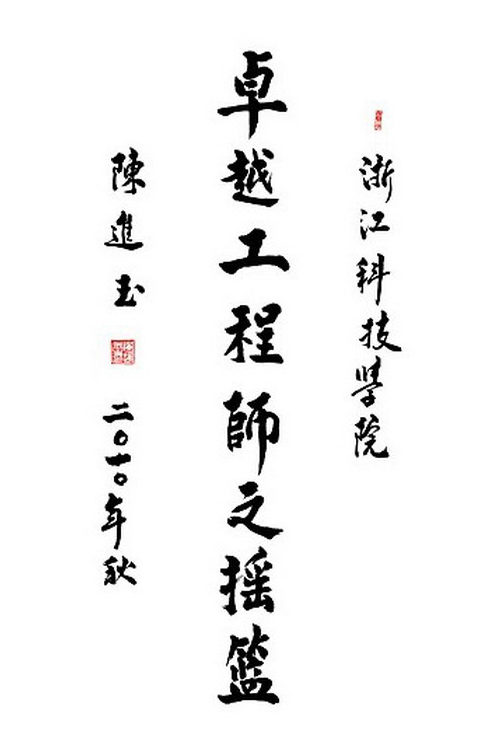 浙江科技學院
卓越工程師之摇籃
陳進玉
二〇一〇年秋